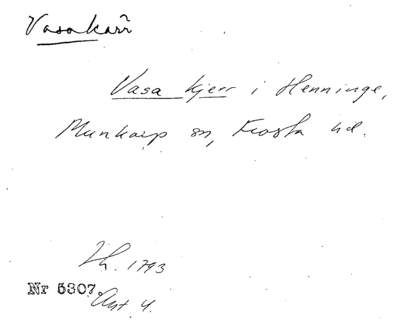 Vasakärr
Vasa kjerr i Henninge,
Munkarp sn, Frosta hd.
Lh. 1793
Nr 5307.
Akt 4.